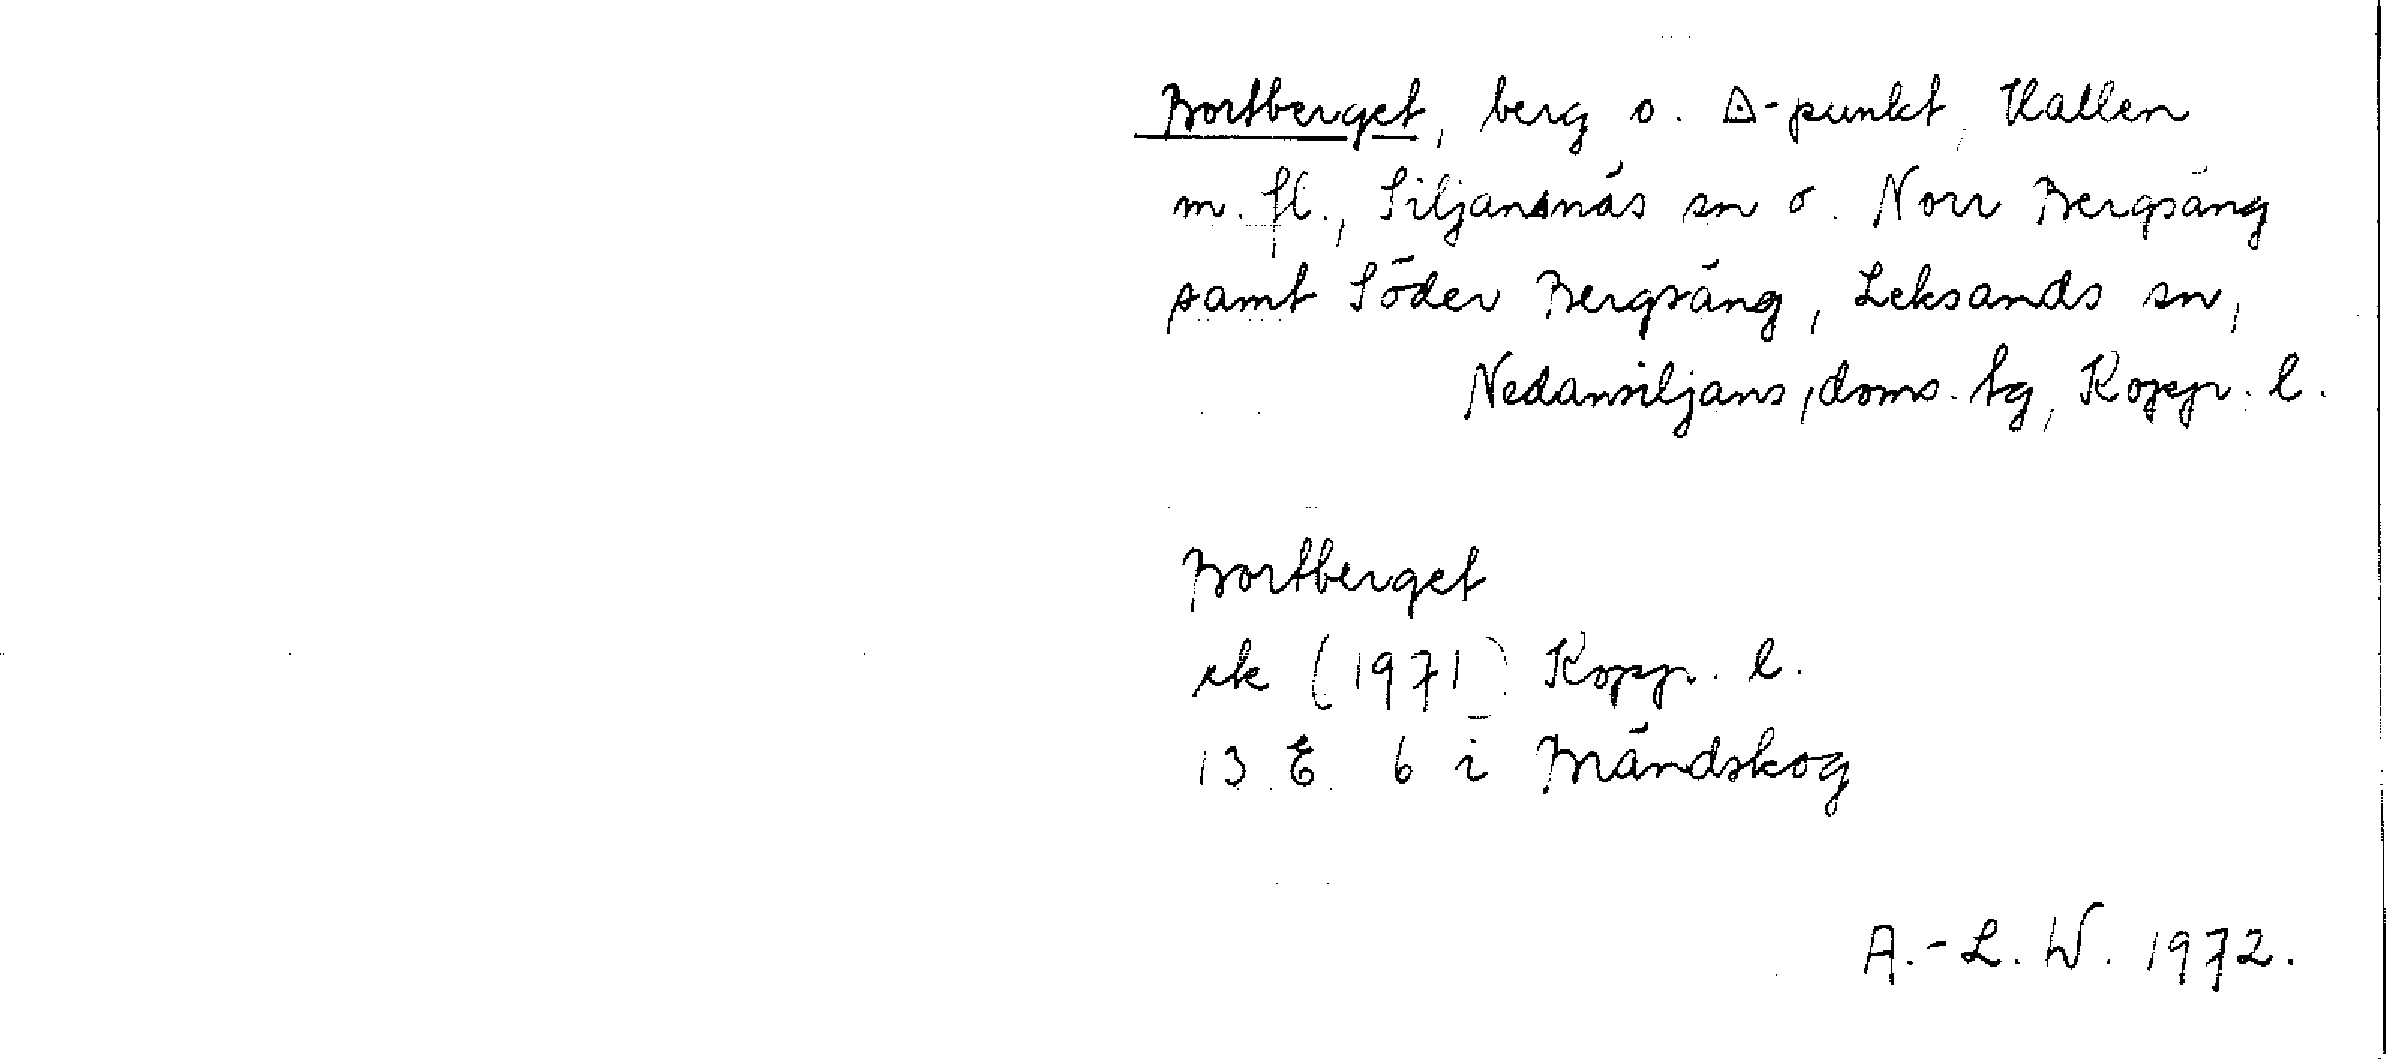 Bortberget, berg o. △-punkt, Hallen
m. fl., Siljansnäs sn o. Norr Bergsäng
samt Söder Bergsäng, Leksands sn,
Nedansiljans, doms. tg, Kopp. l.
Bortberget
rk (1971) Kopp. l.
13 E 6 i Brändskog
A.-L. W. 1972.